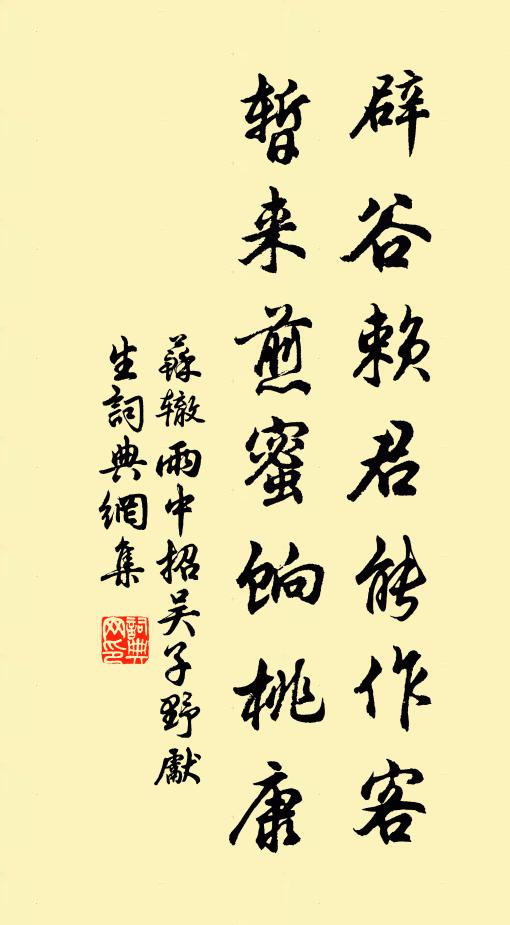 辟谷赖君能作客
暂来煎蜜饷桃康
蘇辙雨中招吴子野獻
生詞典網集
詞典
网印